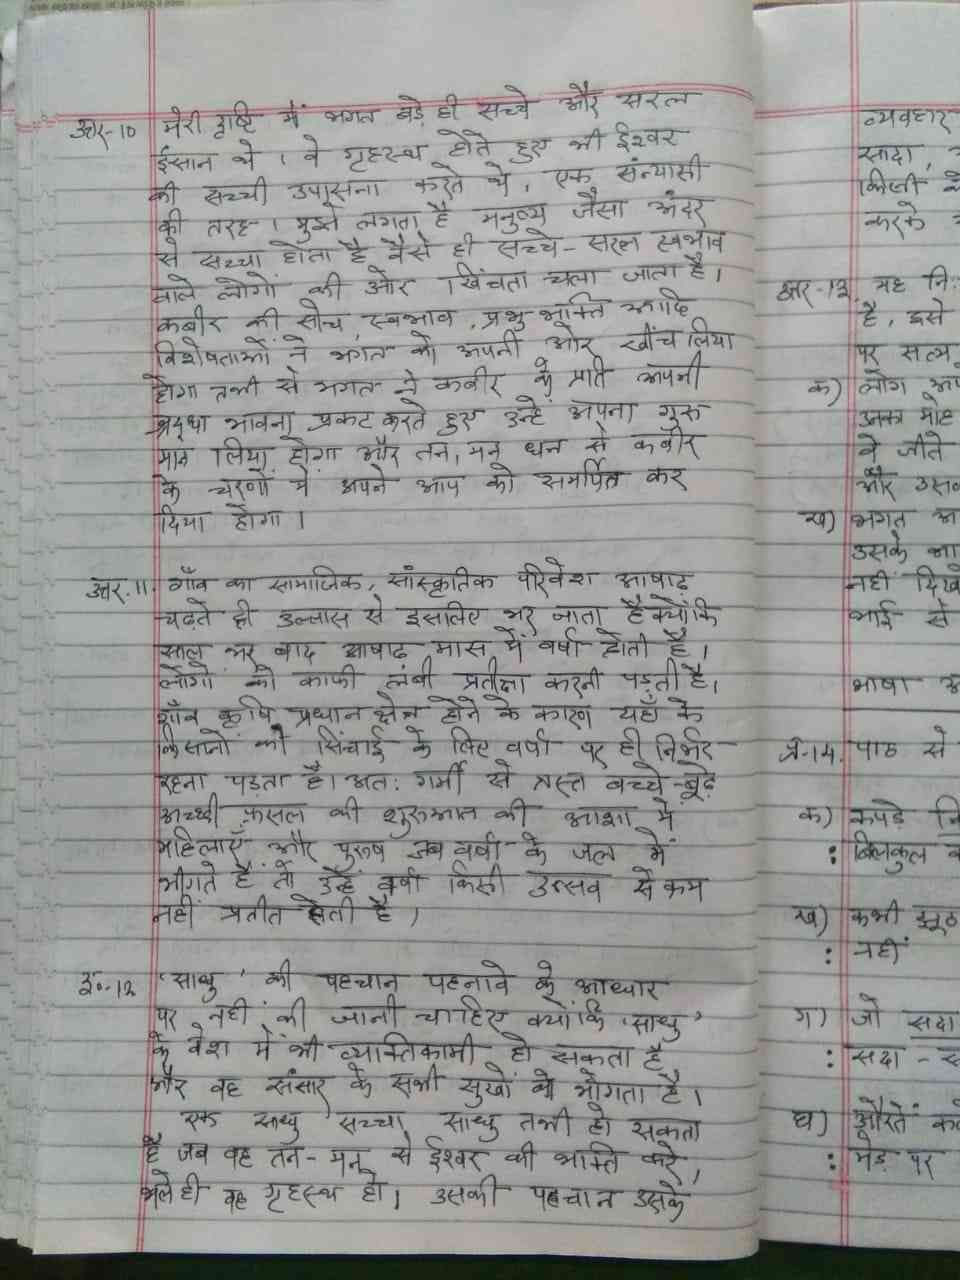 उत्तर-10 मेरी दृष्टि में भगत बड़े ही सच्चे और सरल
ईंसान थे। वे गृहस्थ होते हुए भी ईश्वर
की सच्ची उपासना करते थे, एक संन्यासी
की तरह। मुझे लगता है मनुष्य जैसा अंदर
से सच्चा होता है वैसे ही सच्चे-सरल स्वभाव
वाले लोगों की ओर खिंचता चला जाता है।
कबीर की सोच, स्वभाव, प्रभु-भक्ति आदि
विशेषताओं ने भगत को अपनी ओर खींच लिया
होगा तभी से भगत ने कबीर के प्रति अपनी
श्रद्धा भावना प्रकट करते हुए उन्हें अपना गुरु
मान लिया होगा और तन, मन धन से कबीर
के चरणों में अपने आप को समर्पित कर
दिया होगा।
उत्तर.11. गाँव का सामाजिक, सांस्कृतिक परिवेश आषाढ़
चढ़ते ही उल्लास से इसलिए भर जाता है क्योंकि
साल भर बाद आषाढ़ मास में वर्षा होती है।
लोगों को काफी लंबी प्रतीक्षा करनी पड़ती है।
गाँव कृषि प्रधान क्षेत्र होने के कारण यहाँ के
किसानों को सिंचाई के लिए वर्षा पर ही निर्भर
रहना पड़ता है। अत: गर्मी से त्रस्त बच्चे-बूढ़े
अच्छी फ़सल की शुरुआत की आशा में
महिलाएँ और पुरुष जब वर्षा के जल में
भीगते हैं तो उन्हें वर्षा किसी उत्सव से कम
नहीं प्रतीत होती है।
उ०-12 'साधु' की पहचान पहनावे के आधार
पर नहीं की जानी चाहिए क्योंकि 'साधु'
के वेश में भी व्यक्तिकामी हो सकता है
और वह संसार के सभी सुखों को भोगता है।
एक साधु सच्चा साधु तभी हो सकता
है जब वह तन-मन से ईश्वर की भक्ति करे,
भले ही वह गृहस्थ हो। उसकी पहचान उसके
व्यवहार
सादा,
किसी
करके
उत्तर-13. यह नि:
है, इसे
पर सत्य
क) लोग
उनका मोह
वे जीते
और
ख) भगत
उसके
नहीं
भाई से
भाषा
प्र-14. पाठ से
क) कपड़े
: बिलकुल
ख) कभी झूठ
: नहीं
ग) जो सदा
: सदा -
घ) औरतें
: मेड़ पर